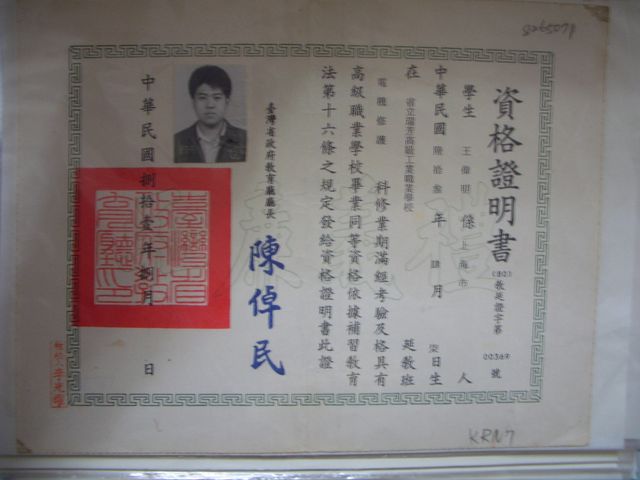 資格證明書
(80)教延證字第00369號
學生 王偉明 係 上海市 人
中華民國 陸拾叁 年 肆 月 柒 日生
在 省立瑞芳高級工業職業學校 延教班
電機修護 科修業期滿經考驗及格具有
高級職業學校畢業同等資格依據補習教育
法第十六條之規定發給資格證明書此證
臺灣省政府教育廳廳長 陳倬民
中華民國捌拾壹年 月 日
禮義廉
S265079
KRN7